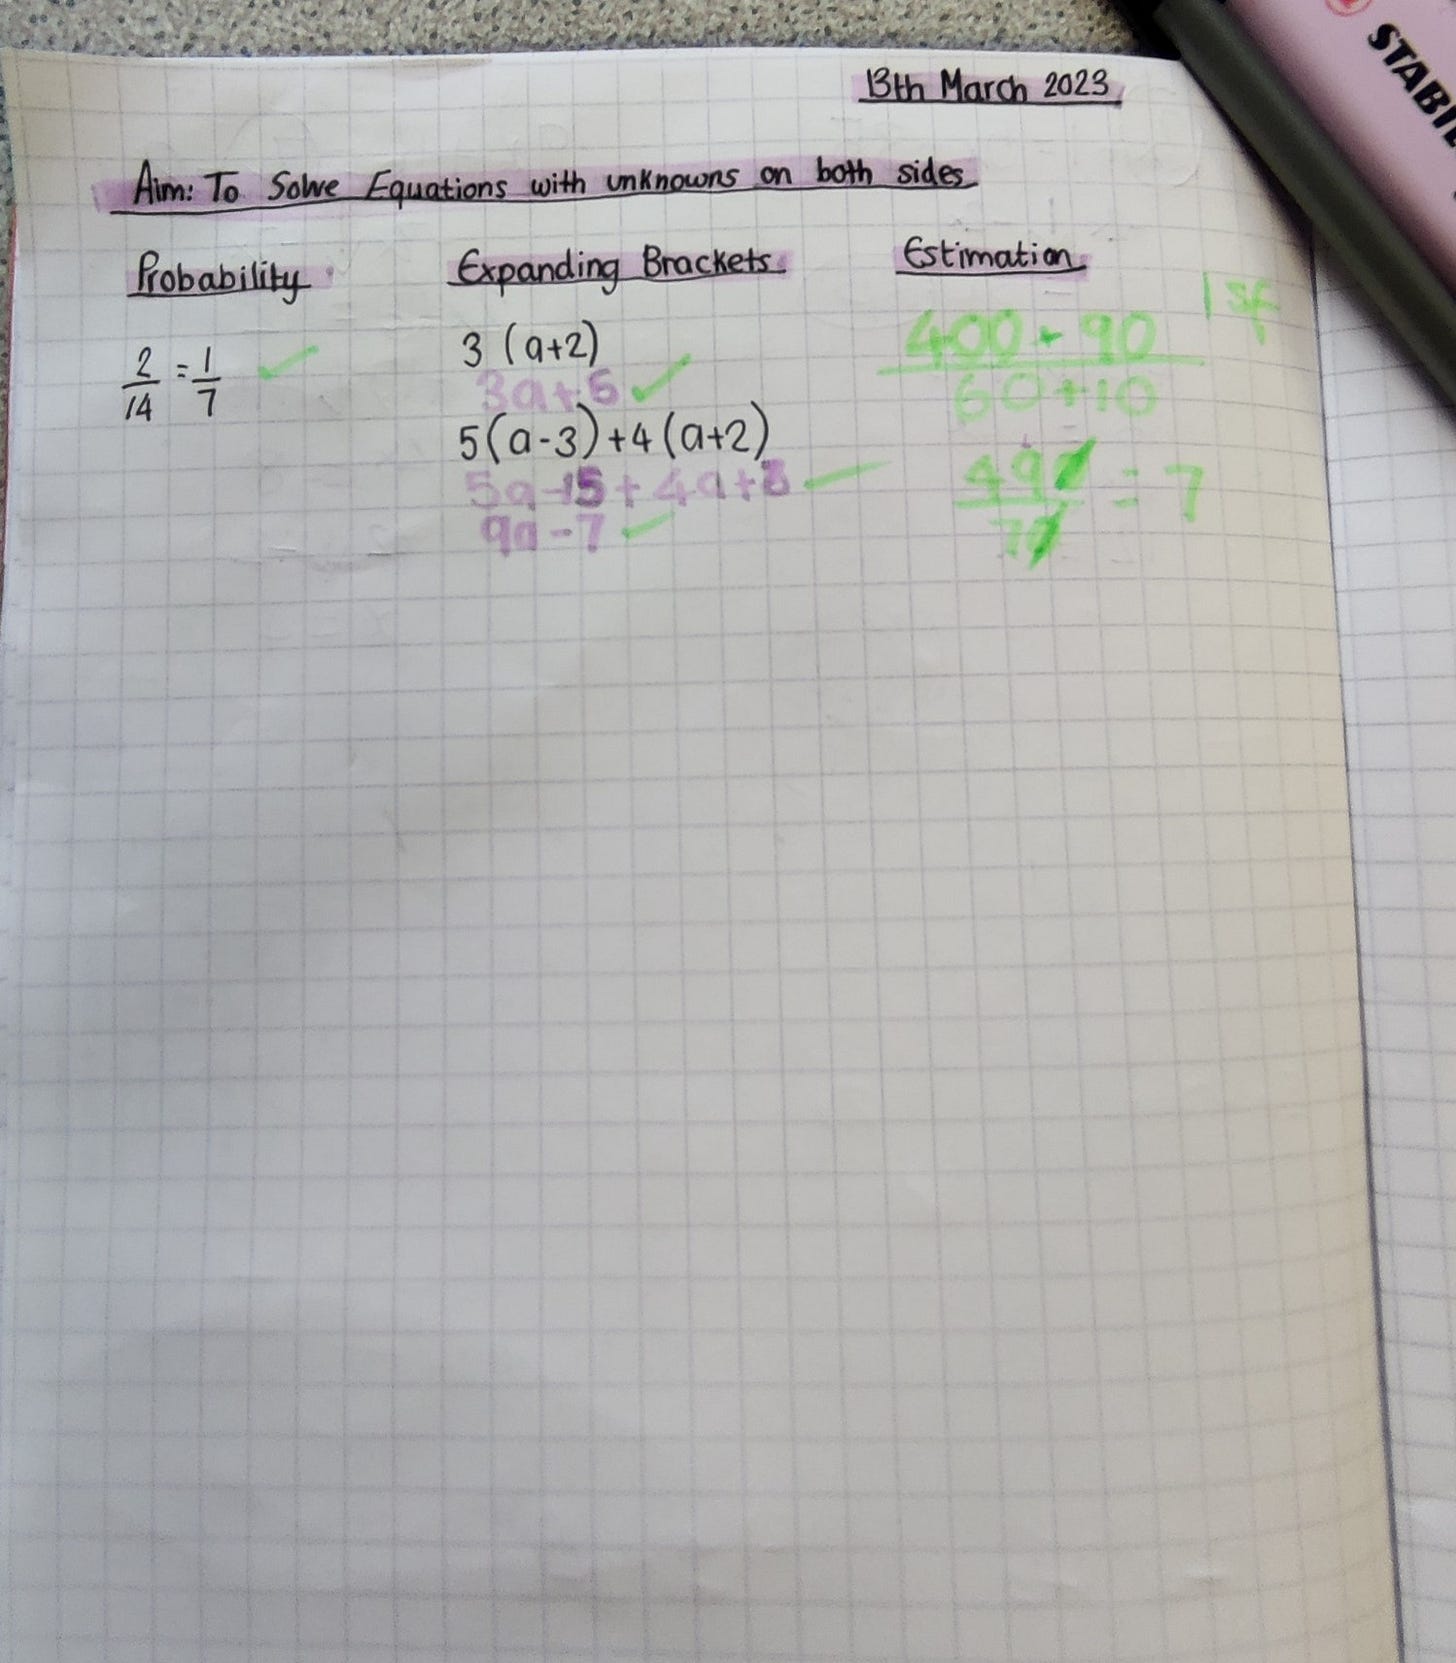 STABIL
13th March 2023
Aim: To Solve Equations with unknowns on both sides
Probability
2/14 = 1/7
Expanding Brackets
3 (a+2)
3a+6
5(a-3)+4(a+2)
5a-15+4a+8
9a-7
Estimation
1 sf
400+90
60+10
490/70 = 7